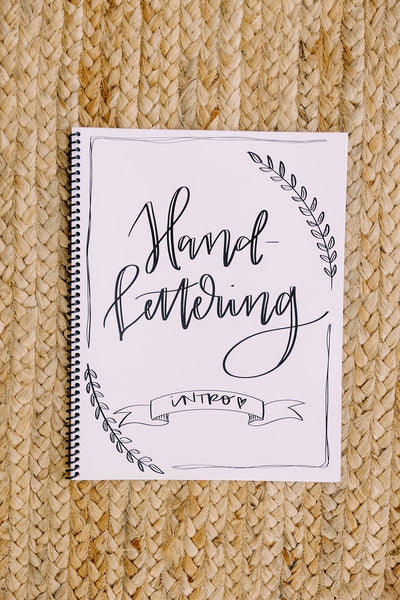 Hand-
Lettering
INTRO♡